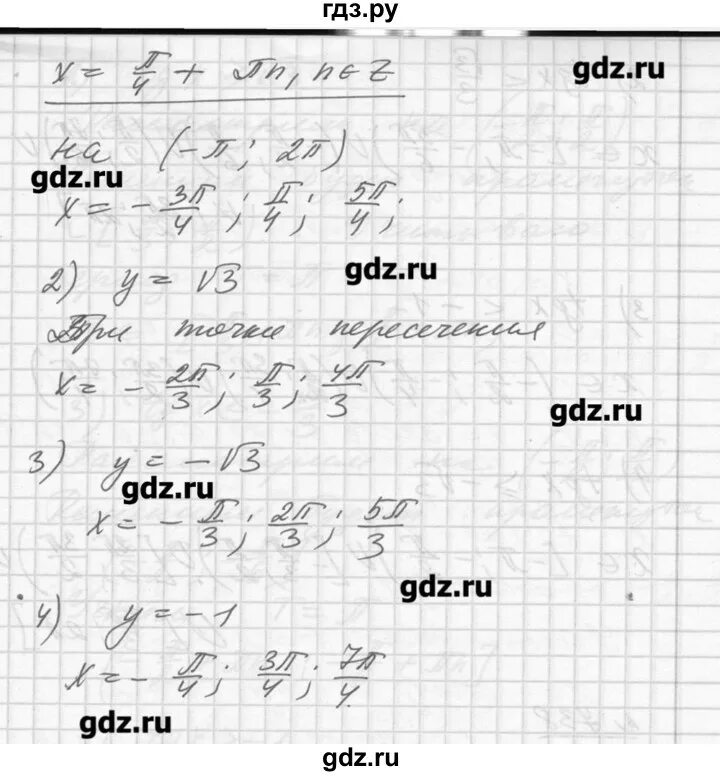 гдз.ру
x = π/4 + πn, n∈Z
gdz.ru
на (-π; 2π)
gdz.ru
x = - 3π/4; π/4; 5π/4;
2) y = √3
gdz.ru
При точки пересечения
x = - 2π/3; π/3; 4π/3
gdz.ru
3) y = -√3
gdz.ru
x = - π/3; 2π/3; 5π/3
gdz.ru
4) y = -1
x = - π/4; 3π/4; 7π/4.
gdz.ru
gdz.ru